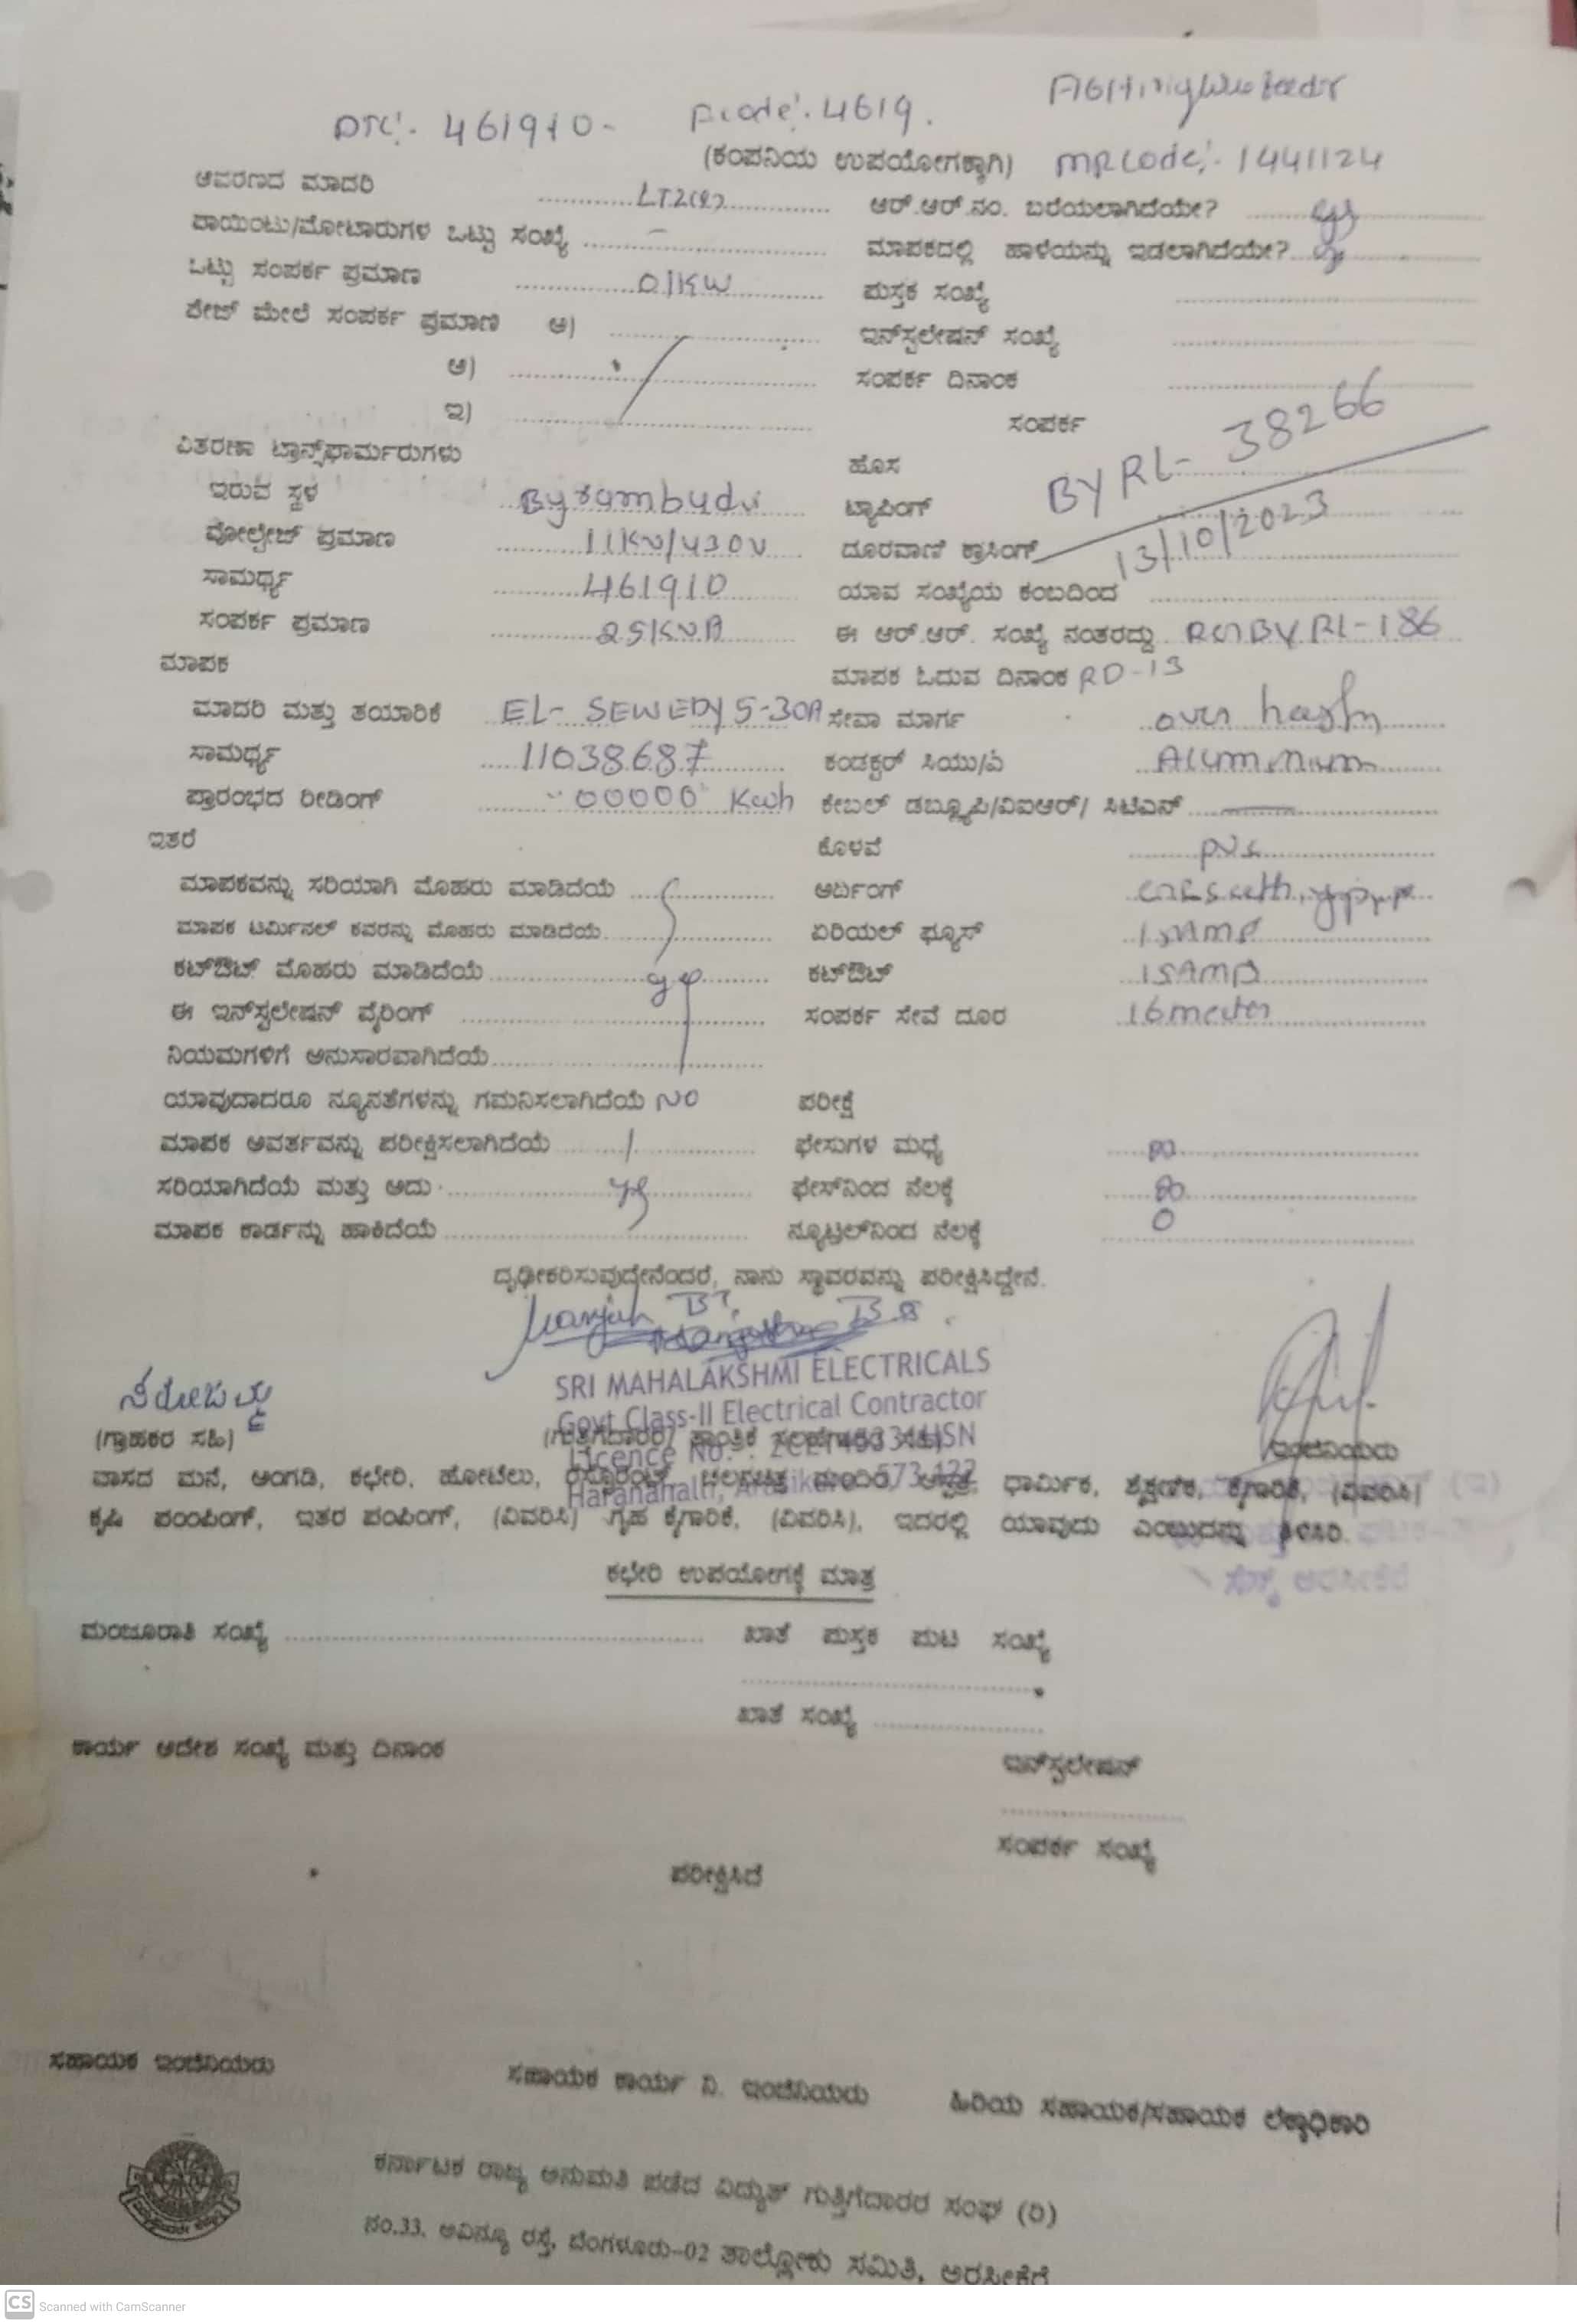 DTC:- 461910- Fcode:- 4619.
(ಕಂಪನಿಯ ಉಪಯೋಗಕ್ಕಾಗಿ) MR Code:- 1441124
ಆವರಣದ ಮಾದರಿ ............ ಆರ್.ಆರ್.ನಂ. ಬರೆಯಲಾಗಿದೆಯೇ? ............
ಪಾಯಿಂಟು/ಮೋಟಾರುಗಳ ಒಟ್ಟು ಸಂಖ್ಯೆ ............ ಮಾಪಕದಲ್ಲಿ ಹಾಳೆಯನ್ನು ಇಡಲಾಗಿದೆಯೇ? ............
ಒಟ್ಟು ಸಂಪರ್ಕ ಪ್ರಮಾಣ 01KW ಪುಸ್ತಕ ಸಂಖ್ಯೆ ............
ಪೇಜ್ ಮೇಲೆ ಸಂಪರ್ಕ ಪ್ರಮಾಣ ಅ) ............ ಇನ್‌ಸ್ಟಲೇಷನ್ ಸಂಖ್ಯೆ ............
ಆ) ............ ಸಂಪರ್ಕ ದಿನಾಂಕ ............
ಇ) ............ ಸಂಪರ್ಕ
ವಿತರಣಾ ಟ್ರಾನ್ಸ್‌ಫಾರ್ಮರುಗಳು ಹೊಸ BYRL- 38266
ಇರುವ ಸ್ಥಳ ............ ಟ್ಯಾಪಿಂಗ್ 13/10/2023
ವೋಲ್ಟೇಜ್ ಪ್ರಮಾಣ 11KV/430V ದೂರವಾಣಿ ಕ್ರಾಸಿಂಗ್
ಸಾಮರ್ಥ್ಯ 461910 ಯಾವ ಸಂಖ್ಯೆಯ ಕಂಬದಿಂದ ............
ಸಂಪರ್ಕ ಪ್ರಮಾಣ 25KVA ಈ ಆರ್.ಆರ್. ಸಂಖ್ಯೆ ನಂತರದ್ದು BYRL-186
ಮಾಪಕ ಮಾಪಕ ಓದುವ ದಿನಾಂಕ RD-13
ಮಾದರಿ ಮತ್ತು ತಯಾರಿಕೆ EL- SEWEDY 5-30A ಸೇವಾ ಮಾರ್ಗ over
ಸಾಮರ್ಥ್ಯ 11038687 ಕಂಡಕ್ಟರ್ ಸಿಯು/ಎ Aluminium
ಪ್ರಾರಂಭದ ರೀಡಿಂಗ್ 00000 Kwh ಕೇಬಲ್ ಡಬ್ಲ್ಯೂಪಿ/ವಿಐಆರ್/ ಸಿಟಿಎನ್ ............
ಇತರೆ ಕೊಳವೆ pvc
ಮಾಪಕವನ್ನು ಸರಿಯಾಗಿ ಮೊಹರು ಮಾಡಿದೆಯೆ ............ ಅರ್ದಿಂಗ್ ............
ಮಾಪಕ ಟರ್ಮಿನಲ್ ಕವರನ್ನು ಮೊಹರು ಮಾಡಿದೆಯೆ ............ ಏರಿಯಲ್ ಫ್ಯೂಸ್ 15Amp
ಕಟ್‌ಔಟ್ ಮೊಹರು ಮಾಡಿದೆಯೆ ............ ಕಟ್‌ಔಟ್ 15Amp
ಈ ಇನ್‌ಸ್ಟಲೇಷನ್ ವೈರಿಂಗ್ ............ ಸಂಪರ್ಕ ಸೇವೆ ದೂರ 16 meter
ನಿಯಮಗಳಿಗೆ ಅನುಸಾರವಾಗಿದೆಯೆ ............
ಯಾವುದಾದರೂ ನ್ಯೂನತೆಗಳನ್ನು ಗಮನಿಸಲಾಗಿದೆಯೆ NO ಪರೀಕ್ಷೆ
ಮಾಪಕ ಅವರ್ತವನ್ನು ಪರೀಕ್ಷಿಸಲಾಗಿದೆಯೆ ............ ಫೇಸುಗಳ ಮಧ್ಯೆ ............
ಸರಿಯಾಗಿದೆಯೆ ಮತ್ತು ಅದು ............ ಫೇಸ್‌ನಿಂದ ನೆಲಕ್ಕೆ ............
ಮಾಪಕ ಕಾರ್ಡನ್ನು ಹಾಕಿದೆಯೆ ............ ನ್ಯೂಟ್ರಲ್‌ನಿಂದ ನೆಲಕ್ಕೆ 0
ದೃಢೀಕರಿಸುವುದೇನೆಂದರೆ, ನಾನು ಸ್ಥಾವರವನ್ನು ಪರೀಕ್ಷಿಸಿದ್ದೇನೆ.
SRI MAHALAKSHMI ELECTRICALS
Govt Class-II Electrical Contractor
Licence No.:
(ಗ್ರಾಹಕರ ಸಹಿ) ಇಂಜಿನಿಯರು
Haranahalli, Arasikere 573 122
ವಾಸದ ಮನೆ, ಅಂಗಡಿ, ಕಛೇರಿ, ಹೋಟೆಲು, ರೆಸ್ಟೊರೆಂಟ್, ಚಲನಚಿತ್ರ ಮಂದಿರ, ಆಸ್ಪತ್ರೆ, ಧಾರ್ಮಿಕ, ಶೈಕ್ಷಣಿಕ, ಕೈಗಾರಿಕೆ, (ವಿವರಿಸಿ)
ಕೃಷಿ ಪಂಂಪಿಂಗ್, ಇತರ ಪಂಪಿಂಗ್, (ವಿವರಿಸಿ) ಗೃಹ ಕೈಗಾರಿಕೆ, (ವಿವರಿಸಿ), ಇದರಲ್ಲಿ ಯಾವುದು ಎಂಬುದನ್ನು ತಿಳಿಸಿರಿ.
ಕಛೇರಿ ಉಪಯೋಗಕ್ಕೆ ಮಾತ್ರ
ಮಂಜೂರಾತಿ ಸಂಖ್ಯೆ ............ ಖಾತೆ ಪುಸ್ತಕ ಪುಟ ಸಂಖ್ಯೆ
ಖಾತೆ ಸಂಖ್ಯೆ ............
ಕಾರ್ಯ ಆದೇಶ ಸಂಖ್ಯೆ ಮತ್ತು ದಿನಾಂಕ ಇನ್‌ಸ್ಟಲೇಷನ್
ಸಂಪರ್ಕ ಸಂಖ್ಯೆ
ಪರೀಕ್ಷಿಸಿದೆ
ಸಹಾಯಕ ಇಂಜಿನಿಯರು ಸಹಾಯಕ ಕಾರ್ಯ ನಿ. ಇಂಜಿನಿಯರು ಹಿರಿಯ ಸಹಾಯಕ/ಸಹಾಯಕ ಲೆಕ್ಕಾಧಿಕಾರಿ
ಕರ್ನಾಟಕ ರಾಜ್ಯ ಅನುಮತಿ ಪಡೆದ ವಿದ್ಯುತ್ ಗುತ್ತಿಗೆದಾರರ ಸಂಘ (ರಿ)
ನಂ.33, ಅವಿನ್ಯೂ ರಸ್ತೆ, ಬೆಂಗಳೂರು-02 ತಾಲ್ಲೋಕು ಸಮಿತಿ, ಅರಸೀಕೆರೆ
CS Scanned with CamScanner